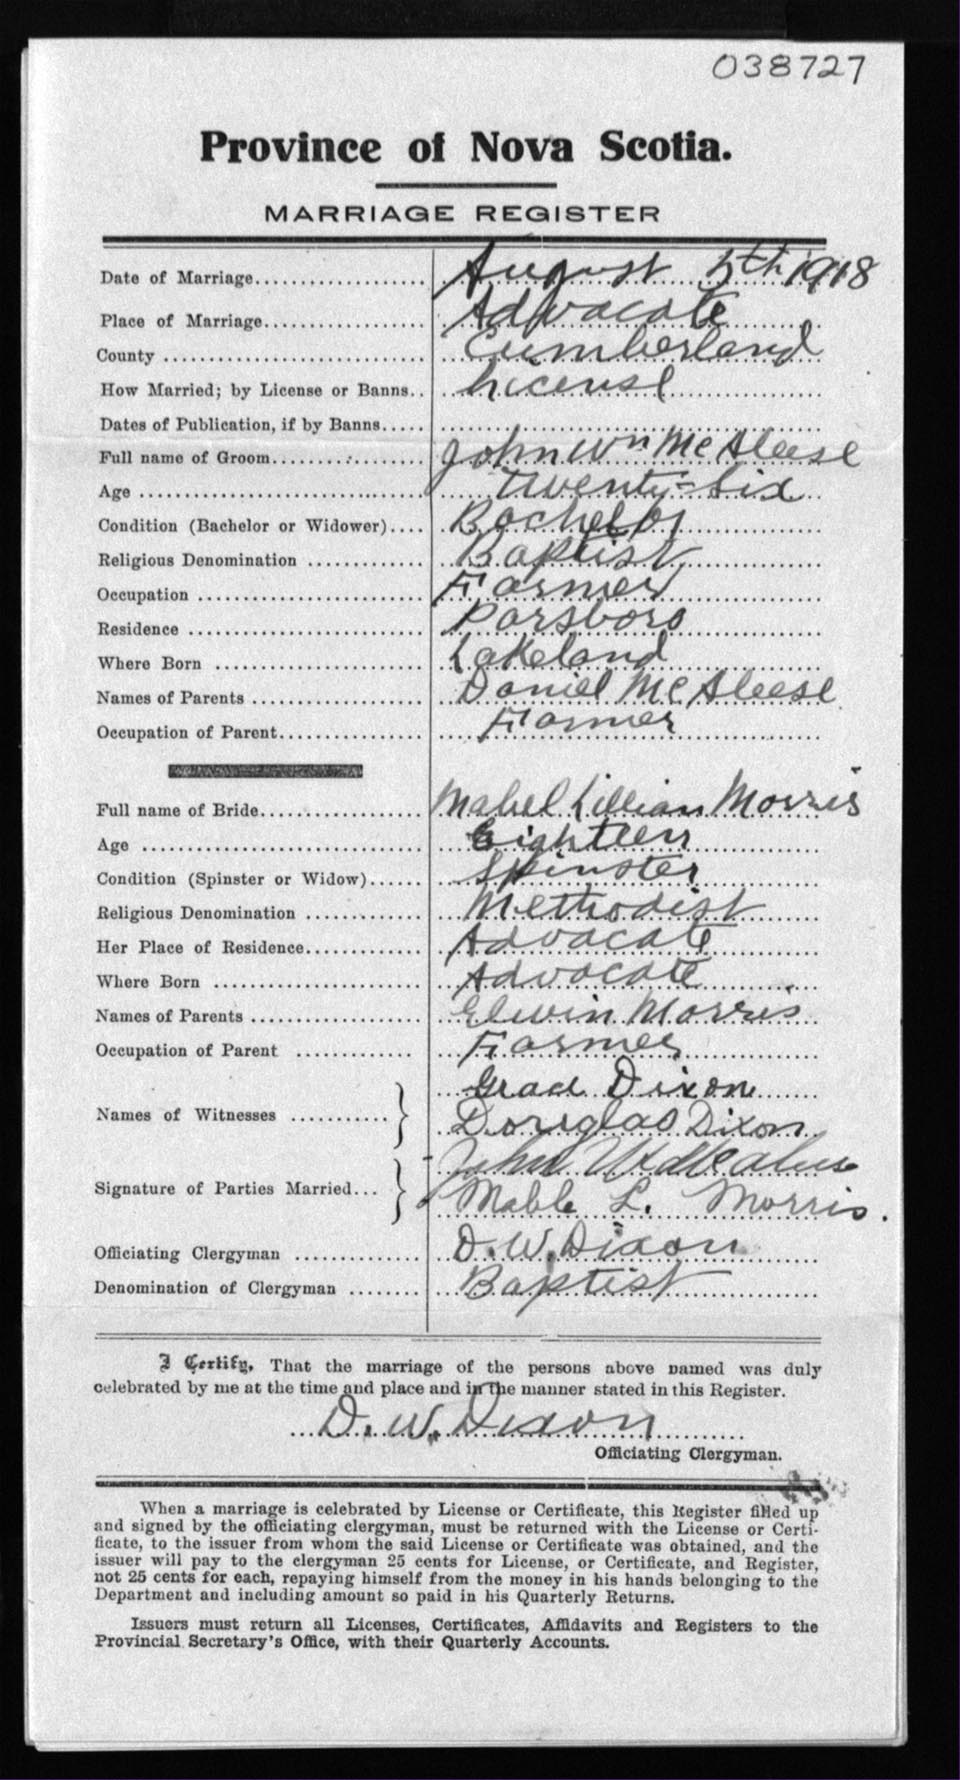 038727
Province of Nova Scotia.
MARRIAGE REGISTER
Date of Marriage.................. August 5th 1918
Place of Marriage.................. Advocate
County .................. Cumberland
How Married; by License or Banns.. License
Dates of Publication, if by Banns.....
Full name of Groom.................. John Wm McAleese
Age .................. Twenty-Six
Condition (Bachelor or Widower).... Bachelor
Religious Denomination ............ Baptist
Occupation .................. Farmer
Residence .................. Parsboro
Where Born .................. Lakeland
Names of Parents .................. Daniel McAleese
Occupation of Parent.................. Farmer
Full name of Bride.................. Mabel Lillian Morris
Age .................. Eighteen
Condition (Spinster or Widow)...... Spinster
Religious Denomination ............ Methodist
Her Place of Residence............ Advocate
Where Born .................. Advocate
Names of Parents .................. Elwin Morris
Occupation of Parent ............ Farmer
Grace Dixon
Names of Witnesses ........... Douglas Dixon
John
Signature of Parties Married... Mable L. Morris.
Officiating Clergyman ............ D. W. Dixon
Denomination of Clergyman ........ Baptist
I Certify, That the marriage of the persons above named was duly
celebrated by me at the time and place and in the manner stated in this Register.
D. W. Dixon
Officiating Clergyman.
When a marriage is celebrated by License or Certificate, this Register filled up
and signed by the officiating clergyman, must be returned with the License or Certi-
ficate, to the issuer from whom the said License or Certificate was obtained, and the
issuer will pay to the clergyman 25 cents for License, or Certificate, and Register,
not 25 cents for each, repaying himself from the money in his hands belonging to the
Department and including amount so paid in his Quarterly Returns.
Issuers must return all Licenses, Certificates, Affidavits and Registers to the
Provincial Secretary's Office, with their Quarterly Accounts.